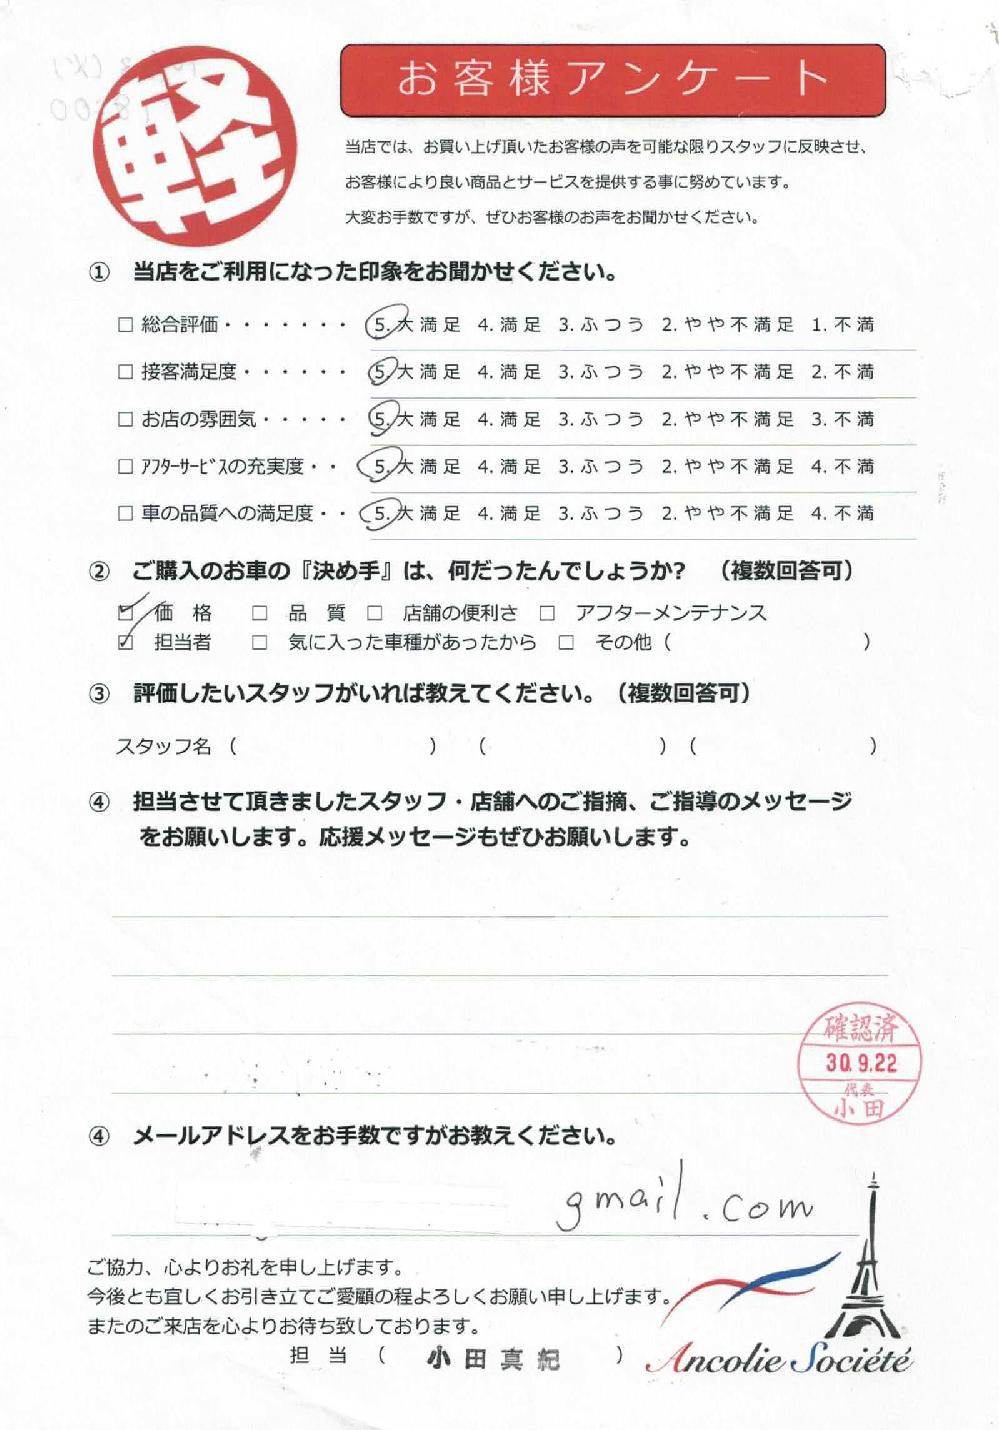 軽
お客様アンケート
当店では、お買い上げ頂いたお客様の声を可能な限りスタッフに反映させ、
お客様により良い商品とサービスを提供する事に努めています。
大変お手数ですが、ぜひお客様のお声をお聞かせください。
① 当店をご利用になった印象をお聞かせください。
□ 総合評価・・・・・・・ 5.大満足 4.満足 3.ふつう 2.やや不満足 1.不満
□ 接客満足度・・・・・・ 5.大満足 4.満足 3.ふつう 2.やや不満足 2.不満
□ お店の雰囲気・・・・・ 5.大満足 4.満足 3.ふつう 2.やや不満足 3.不満
□ ｱﾌﾀｰｻｰﾋﾞｽの充実度・・ 5.大満足 4.満足 3.ふつう 2.やや不満足 4.不満
□ 車の品質への満足度・・ 5.大満足 4.満足 3.ふつう 2.やや不満足 4.不満
② ご購入のお車の『決め手』は、何だったんでしょうか? （複数回答可）
☑ 価 格 □ 品 質 □ 店舗の便利さ □ アフターメンテナンス
☑ 担当者 □ 気に入った車種があったから □ その他（ ）
③ 評価したいスタッフがいれば教えてください。（複数回答可）
スタッフ名（ ）（ ）（ ）
④ 担当させて頂きましたスタッフ・店舗へのご指摘、ご指導のメッセージ
をお願いします。応援メッセージもぜひお願いします。
確認済
30.9.22
代表
小田
④ メールアドレスをお手数ですがお教えください。
gmail.com
ご協力、心よりお礼を申し上げます。
今後とも宜しくお引き立てご愛顧の程よろしくお願い申し上げます。
またのご来店を心よりお待ち致しております。
担 当 （ 小田真紀 ）
Ancolie Société